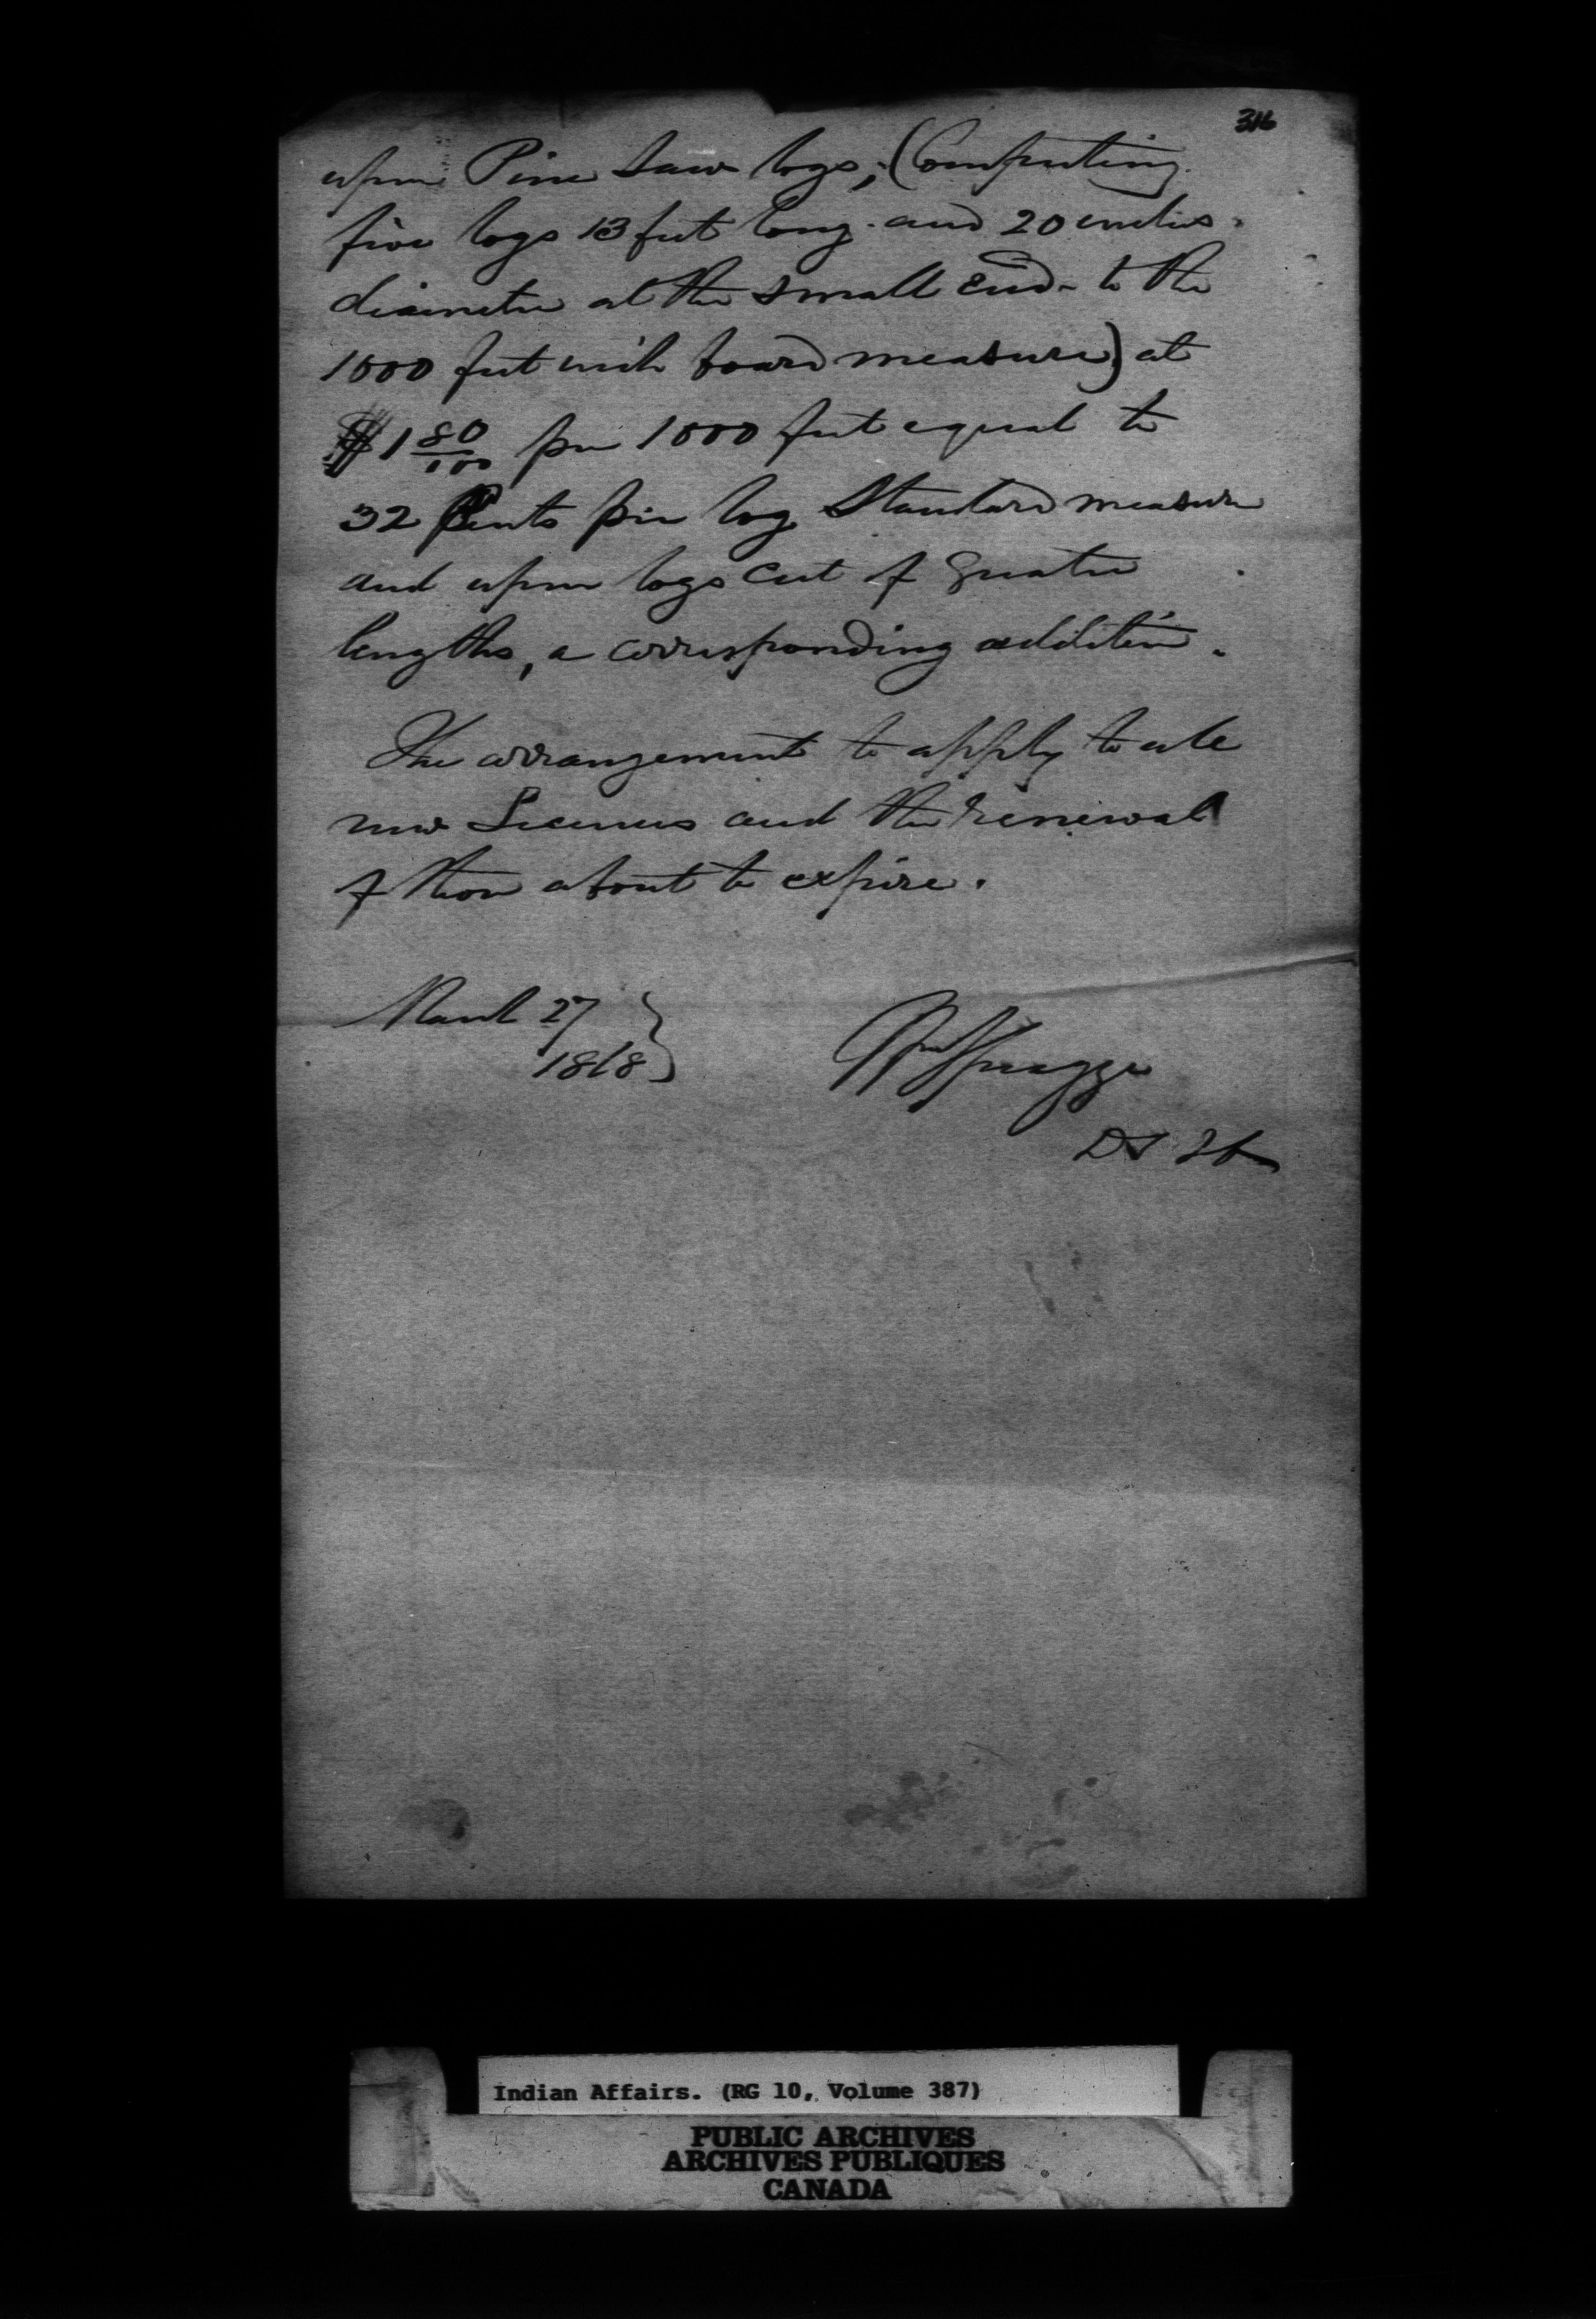 316
upon Pine Saw logs, (Computing
five logs 13 feet long and 20 inches
diameter at the small end - to the
1000 feet inch board measure) at
$1 80/100 per 1000 feet equal to
32 Cents per log Standard measure
and upon logs cut of greater
lengths, a corresponding addition.
The arrangement to apply to all
new Licenses and the renewal
of those about to expire.
March 27
1868
Wm Spragge
DS IA
Indian Affairs. (RG 10, Volume 387)
PUBLIC ARCHIVES
ARCHIVES PUBLIQUES
CANADA